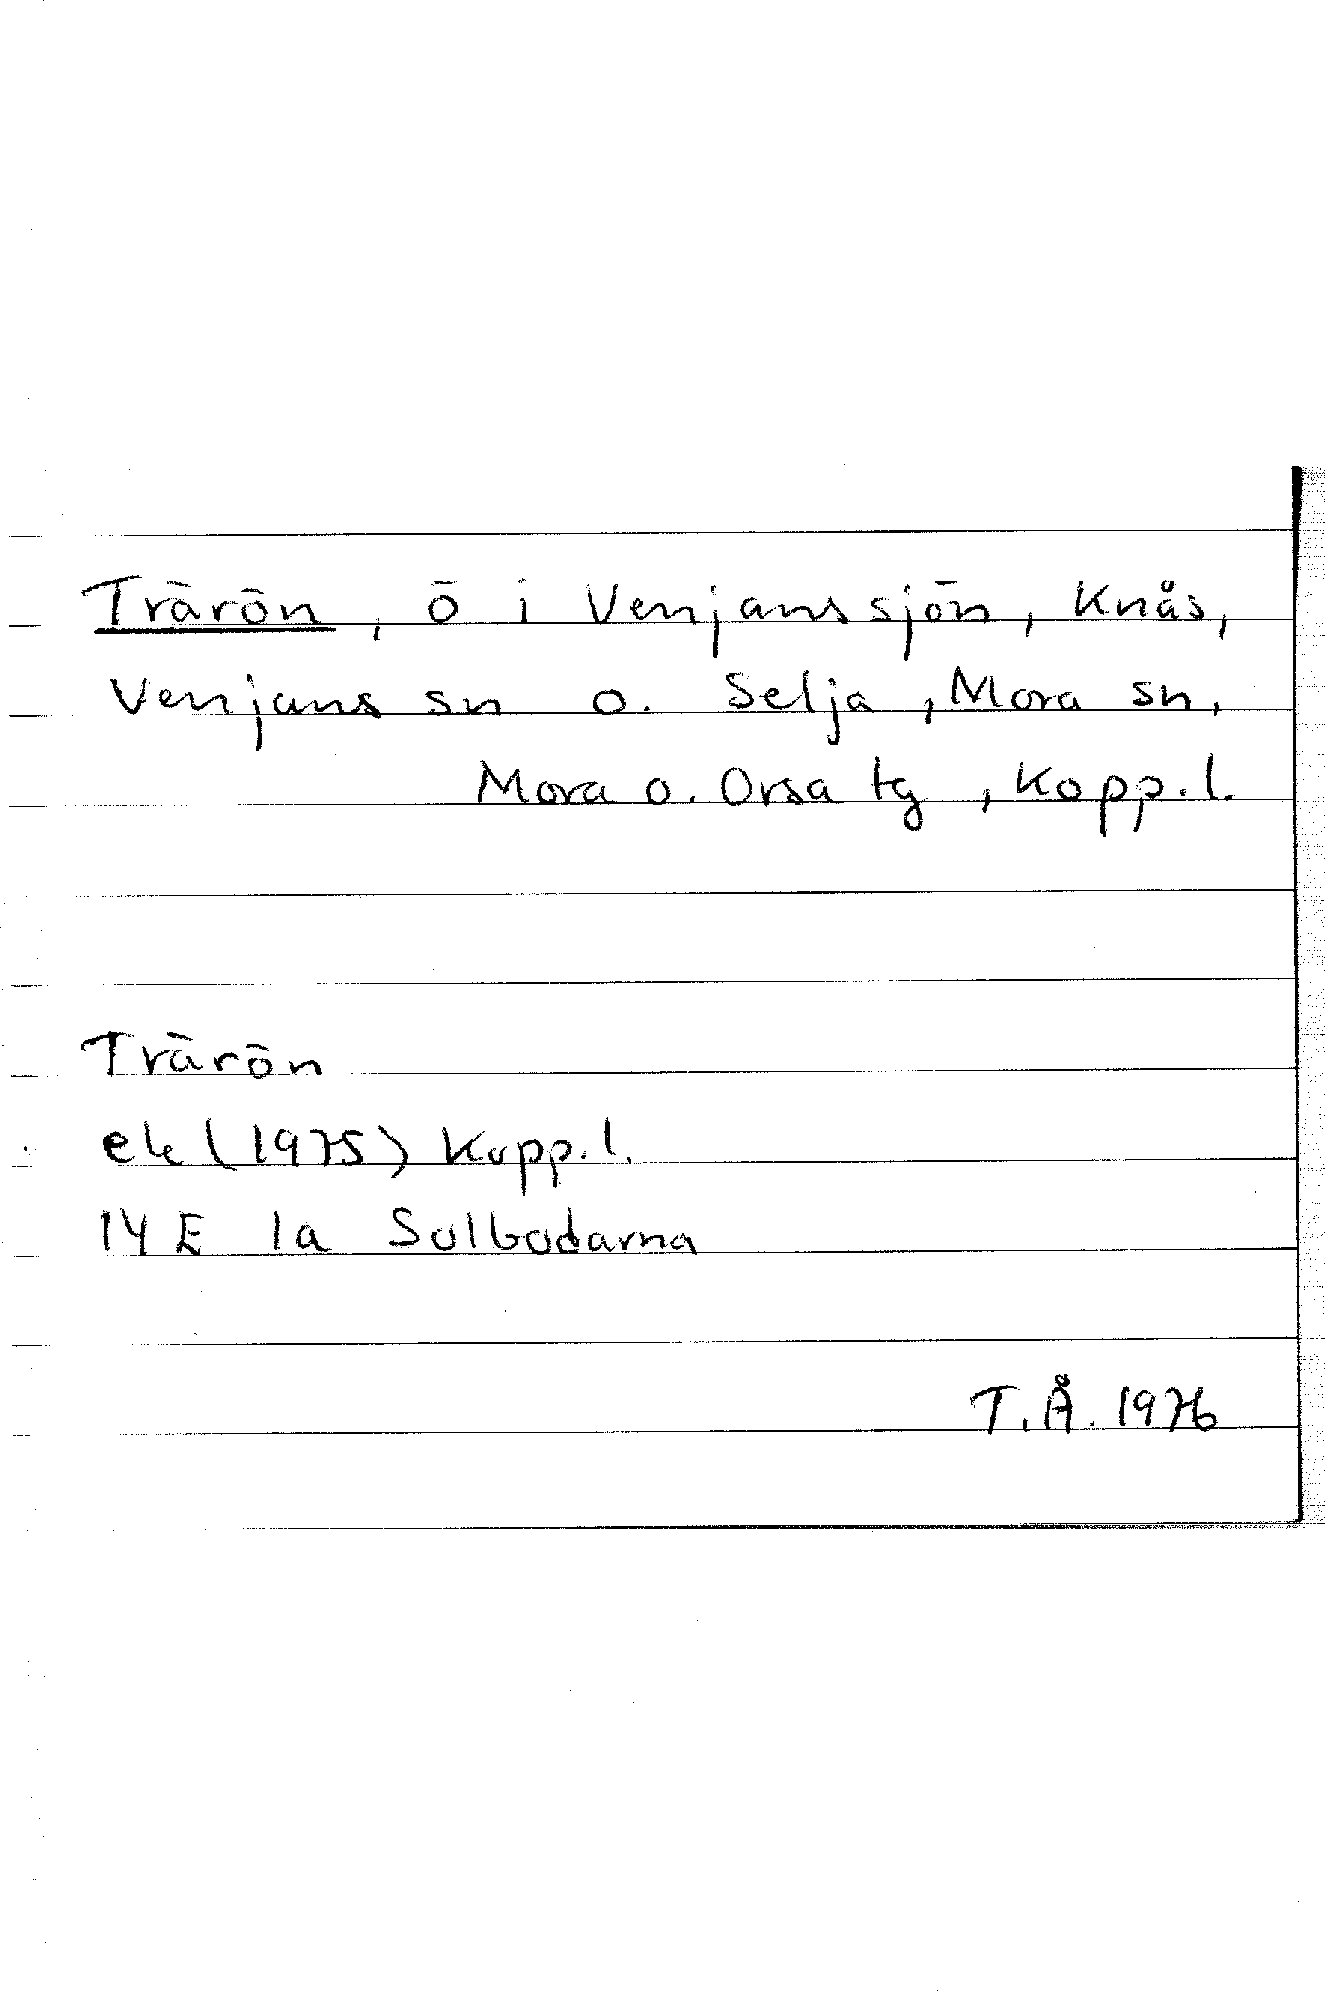 Trärön, ö i Venjanssjön, Knås,
Venjans sn o. Selja, Mora sn,
Mora o. Orsa tg, Kopp. l.
Trärön
ek (1975) Kopp. l.
14 E 1a Solbodarna
T. Å. 1976